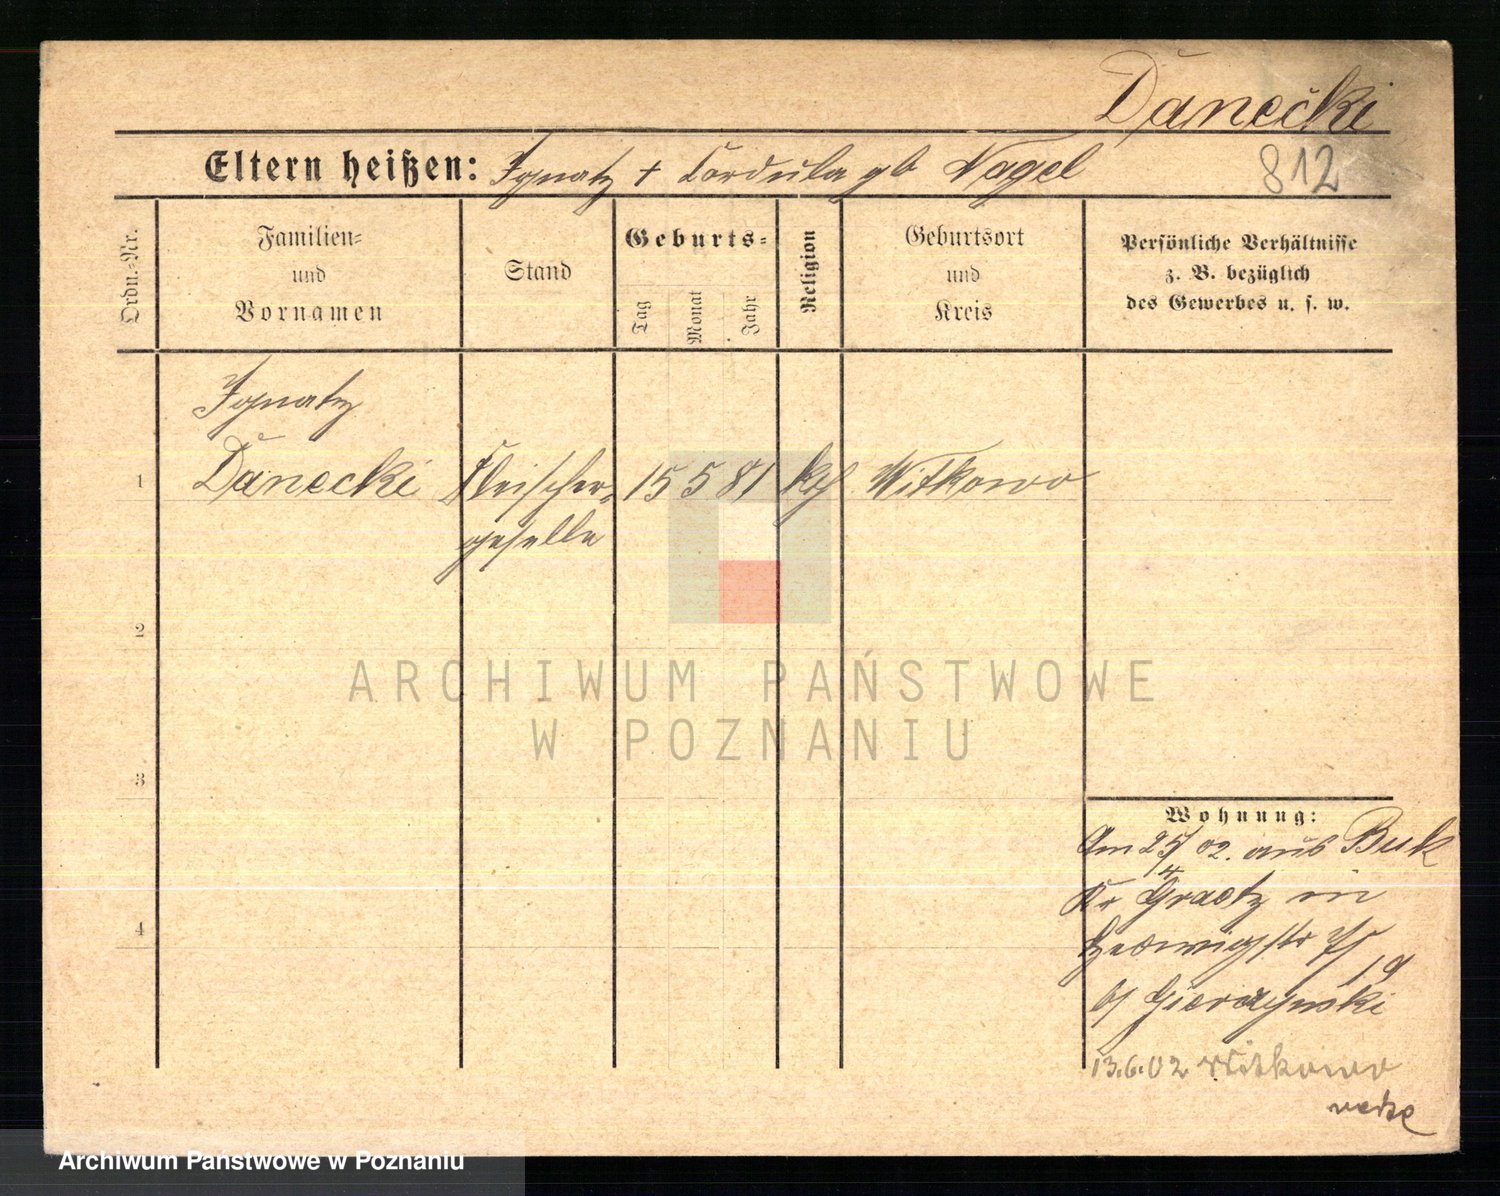 Danecki
Eltern heißen: Ignatz + Kordula gb Nagel
812
Ordn.-Nr.
Familien-
und
Vornamen
Stand
Geburts-
Tag
Monat
Jahr
Religion
Geburtsort
und
Kreis
Persönliche Verhältnisse
z. B. bezüglich
des Gewerbes u. s. w.
Ignatz
1 Danecki Fleischer- 15 5 81 kh Witkowo
geselle
2
3
4
Wohnung:
Am 25/4 02. aus Buk
Kr Graetz in
Hedwigstr
19
b/
13.6.02 Witkowo
ARCHIWUM PAŃSTWOWE
W POZNANIU
Archiwum Państwowe w Poznaniu